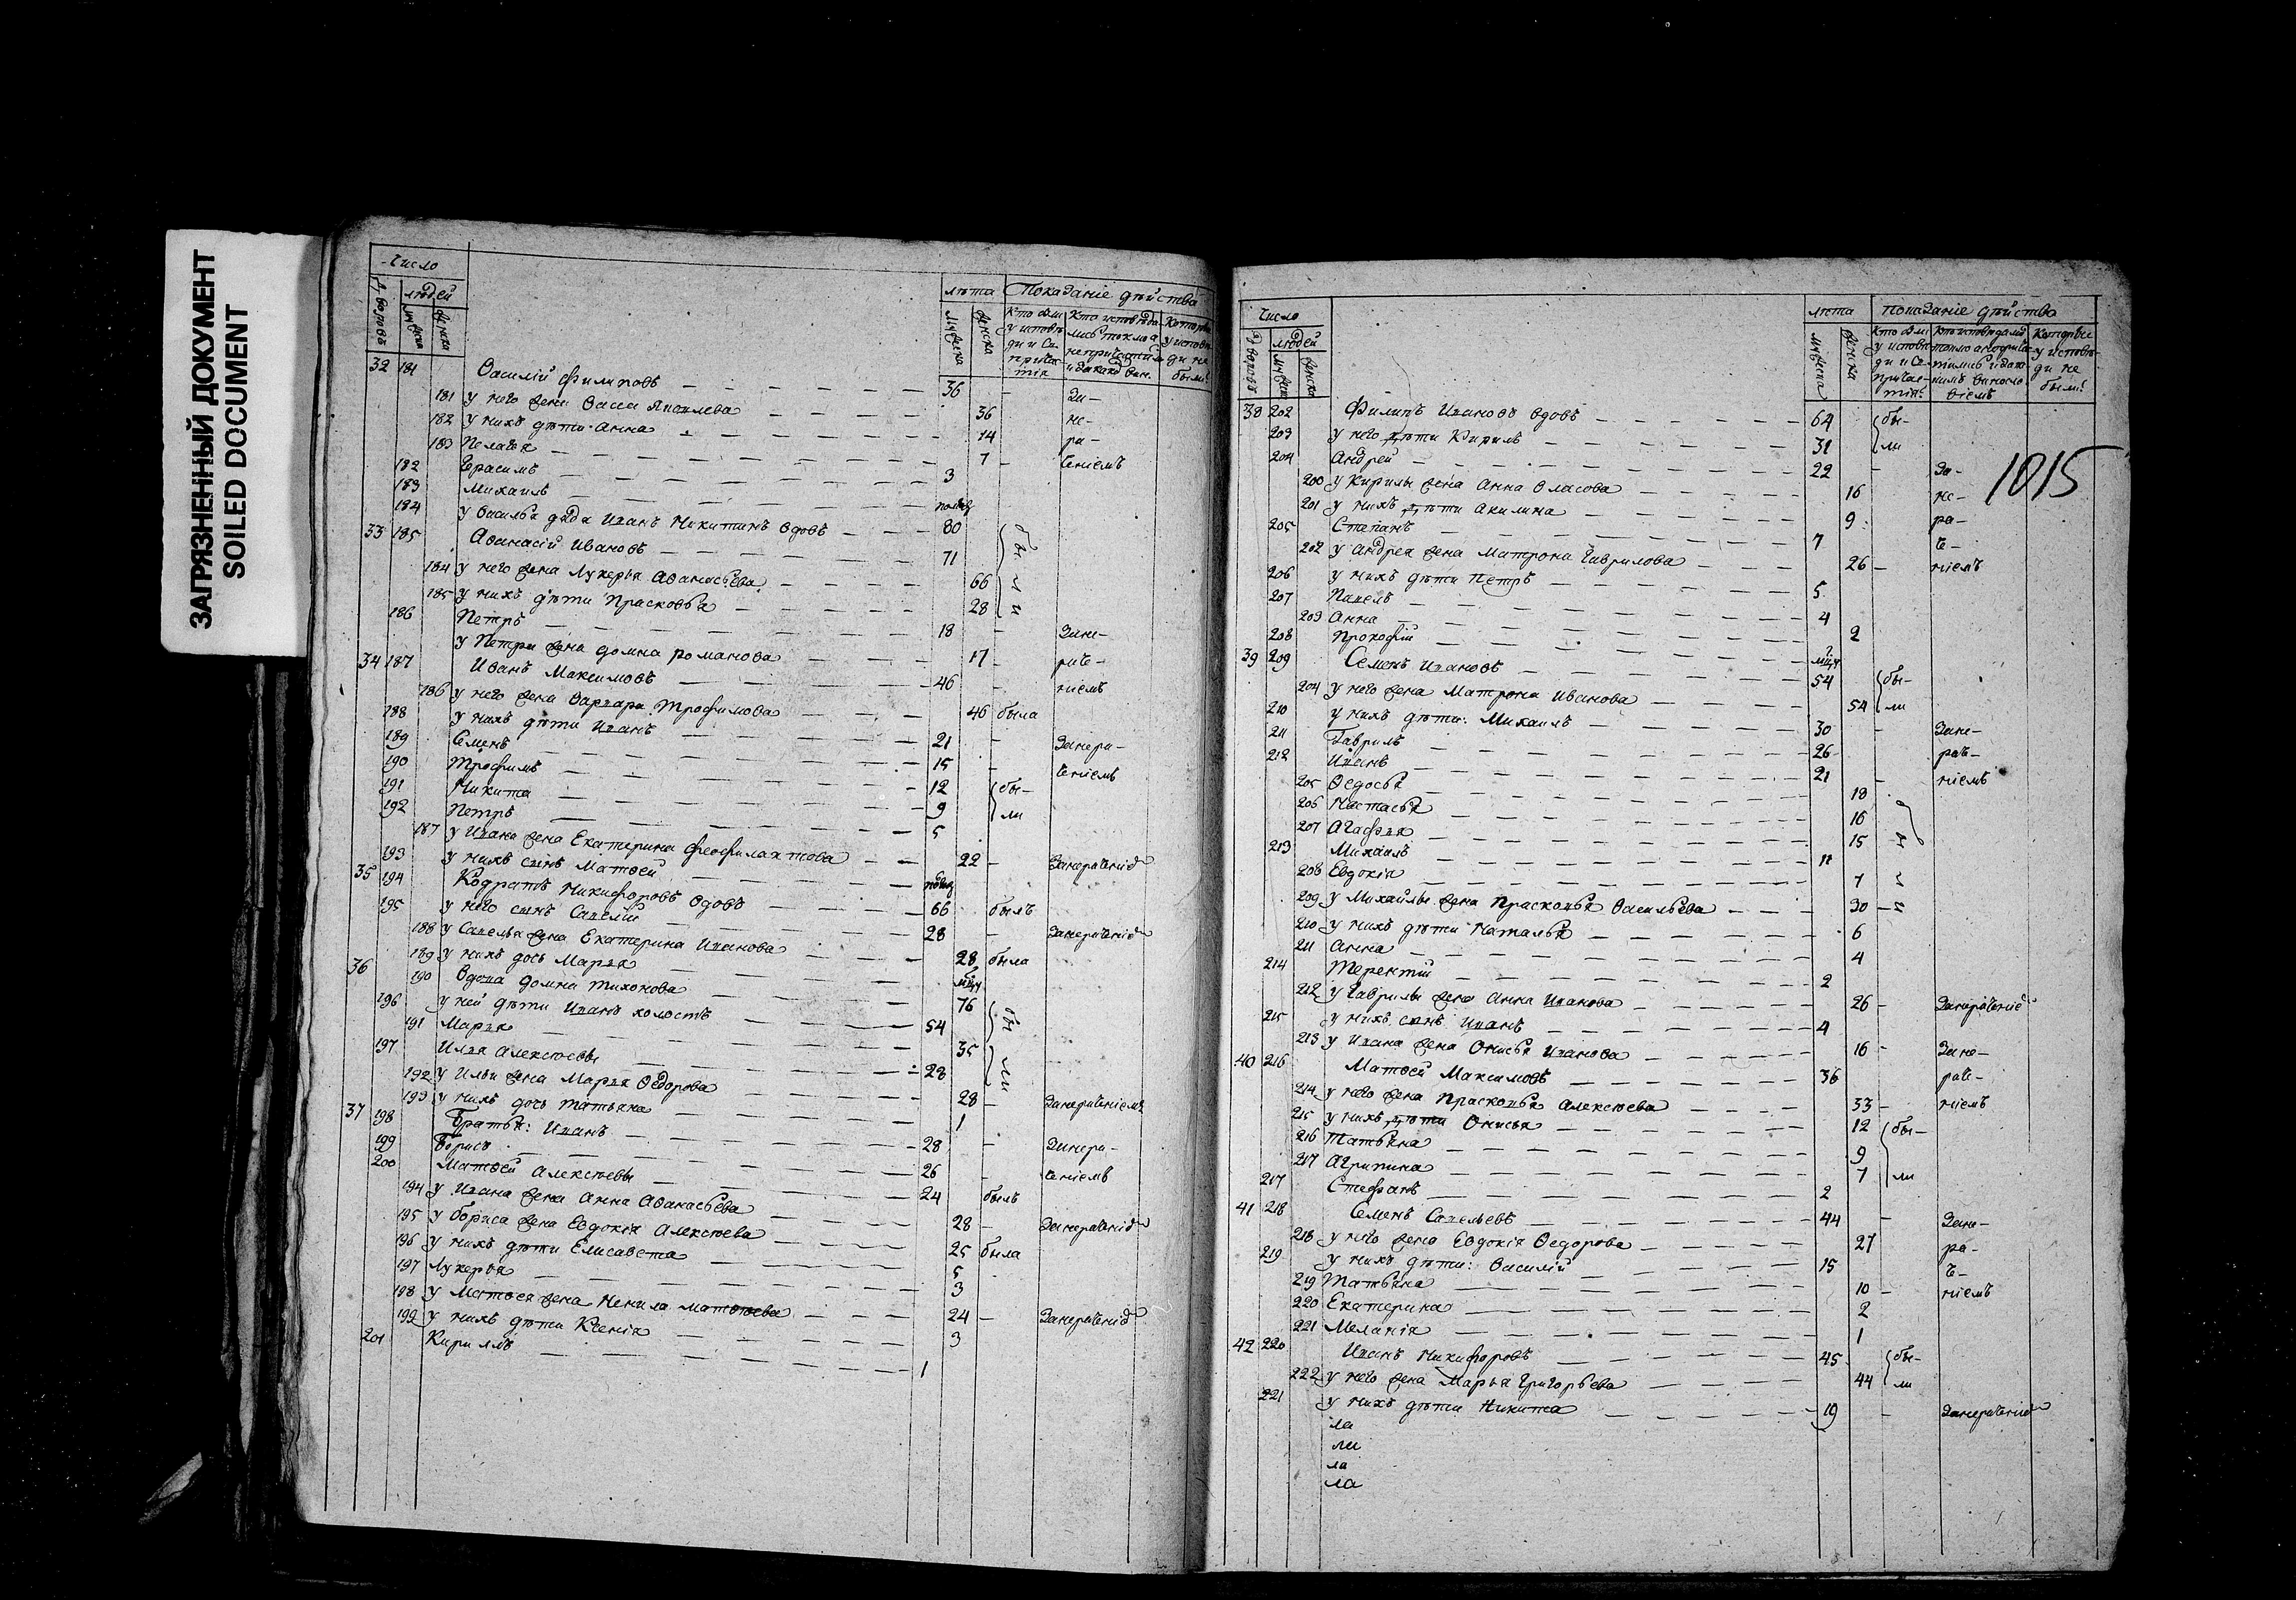 ЗАГРЯЗНЕННЫЙ ДОКУМЕНТ
SOILED DOCUMENT
Число
людей
лѣта Показаніе дѣйства
32 181 Василій Филиповъ 36
181 у него жена Васса Яковлева 36 За-
182 у нихъ дѣти Анна 14 не-
183 Пелагѣя 7 ра-
182 Герасимъ 3 ченіемъ
183 Михаилъ
184 у Василья дядя Иванъ Никитинъ вдовъ 80
33 185 Аѳанасій Ивановъ 71 бы
184 у него жена Лукерья Аѳанасьева 66 л
185 у нихъ дѣти Прасковья 28 и
186 Петръ 18 Зане-
у Петра жена Домна Романова 17 раче-
34 187 Иванъ Максимовъ 46 ніемъ
186 у него жена Варвара Трофимова 46 была
188 у нихъ дѣти Иванъ 21 Занера-
189 Семенъ 15 ченіемъ
190 Трофимъ 12 бы-
191 Никита 9 ли
192 Петръ 5
187 у Ивана жена Екатерина Феофилактова 22 Занераченіе
193 у нихъ сынъ Матѳей
35 194 Кодратъ Никифоровъ вдовъ 66 былъ
195 у него сынъ Савелій 28 Занераченіе
188 у Савелья жена Екатерина Иванова 28 была
189 у нихъ дочь Марья
36 190 Вдова Домна Тихонова 76
196 у ней дѣти Иванъ холостъ 54 бы
191 Марья 35
197 Илья Алексѣевы 28 ли
192 у Ильи жена Марья Ѳедорова 28 Занераченіемъ
193 у нихъ дочь Татьяна 1
37 198 Братья: Иванъ 28 Занера-
199 Борисъ 26 ченіемъ
200 Матѳей Алексѣевы 24 былъ
194 у Ивана жена Анна Аѳанасьева 28 Занераченіе
195 у Бориса жена Евдокія Алексѣева 25 была
196 у нихъ дѣти Елисавета 5
197 Лукерья 3
198 у Матѳея жена Ненила Матѳѣева 24 Занераченіе
199 у нихъ дѣти Ксенія 3
201 Кириллъ 1
Число
людей
лѣта показаніе дѣйства
1015
38 202 Филипъ Ивановъ вдовъ 64 бы-
203 у него дѣти Кирилъ 31 ли
204 Андрей 22 За-
200 у Кирилы жена Анна Власова 16 не-
201 у нихъ дѣти Акилина 9 ра-
205 Степанъ 7 че-
202 у Андрея жена Матрона Гаврилова 26 ніемъ
206 у нихъ дѣти Петръ 5
207 Павелъ 4
203 Анна 2
208 Прокофій
39 209 Семенъ Ивановъ 54 бы-
204 у него жена Матрона Иванова 54 ли
210 у нихъ дѣти: Михаилъ 30 Зане-
211 Гаврилъ 26 раче-
212 Иванъ 21 ніемъ
205 Ѳедосья 18
206 Настасья 16
207 Агафья 15
213 Михаилъ 11
208 Евдокія 7
209 у Михайлы жена Прасковья Васильева 30
210 у нихъ дѣти Наталья 6
211 Анна 4
214 Терентій 2
212 у Гаврилы жена Анна Иванова 26 Занераченіе
215 у нихъ сынъ Иванъ 4
213 у Ивана жена Онисья Иванова 16 Зане-
40 216 Матѳей Максимовъ 36 раче-
214 у него жена Прасковья Алексѣева 33 ніемъ
215 у нихъ дѣти Онисья 12 бы-
216 Татьяна 9
217 Агрипина 7 ли
217 Стефанъ 2
41 218 Семенъ Савельевъ 44 Зане-
218 у него жена Евдокія Ѳедорова 27 ра-
219 у нихъ дѣти: Василій 15 че-
219 Татьяна 10 ніемъ
220 Екатерина 2
221 Меланія 1
42 220 Иванъ Никифоровъ 45 бы-
222 у него жена Марья Григорьева 44 ли
221 у нихъ дѣти Никита 19 Занераченіе
ла
ли
ла
ла